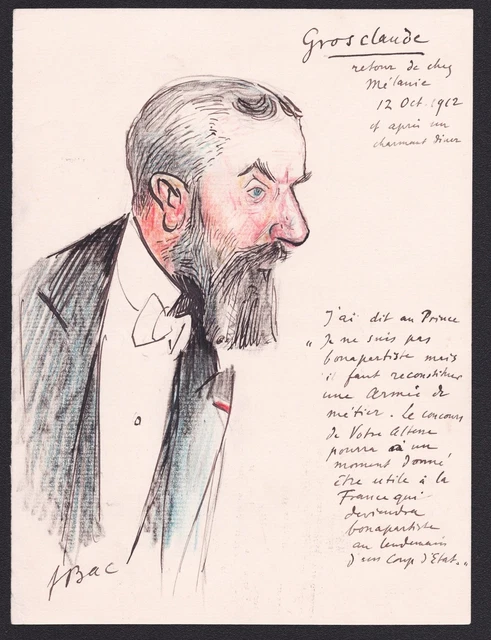 Grosclaude
retour de chez
Mélanie
12 Oct. 1912
et après un
charmant diner
J'ai dit au Prince
"Je ne suis pas
bonapartiste mais
il faut reconstituer
une Armée de
métier. Le concours
de Votre Altesse
pourra à un
moment donné
être utile à la
France qui
deviendra
bonapartiste
au lendemain
d'un Coup d'Etat."
FBac